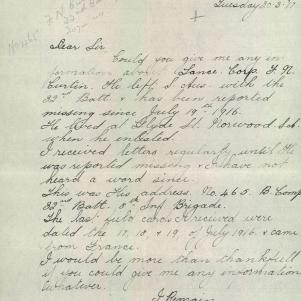 Tuesday 20-3-17
Dear Sir
Could you give me any in
formation about Lance. Corp. F. N.
Curtin. He left S. Aus. with the
32nd Batt. & has been reported
missing since July 19th 1916.
He lived at Clyde St. Norwood S.A.
when he enlisted.
I received letters regularly until He
was reported missing & I have not
heard a word since.
This was His address. No. 465. B Comp
32nd Batt. 8th Inf. Brigade.
The last field cards I received were
dated the 17, 10, & 19, of July 1916. & came
from France.
I would be more than thankfull
if you could give me any information
whatever.
I Remain